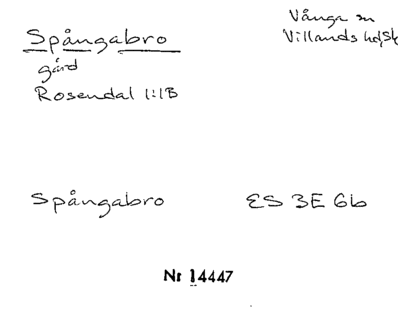 Spångabro
Vånga sn
Villands hd, Sk
gård
Rosendal 1:1B
Spångabro
ES 3E 6b
Nr 14447